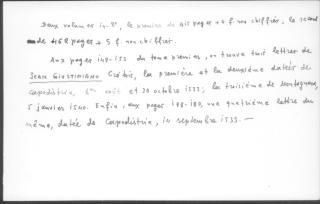 Deux volumes in-8°, le premier de 215 pages + 4 f. non chiffrés, le second
de 462 pages + 5 f. non chiffrés.
Aux pages 149-152 du tome premier, on trouve trois lettres de
JEAN GIUSTINIANO Crétois, la première et la deuxième datées de
Capodistria, 6 août et 30 octobre 1533; la troisième de
5 janvier 1540. Enfin, aux pages 178-180, une quatrième lettre du
même, datée de Capodistria, 14 septembre 1533. —